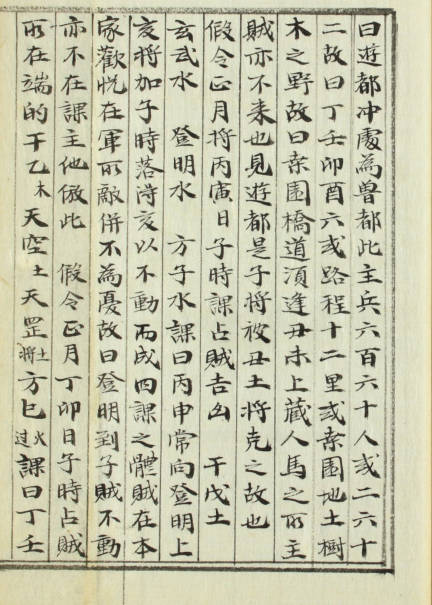 曰遊都冲處為魯都此主兵六百六十人或二六十
二故曰丁壬卯酉六或路程十二里或桒園地土樹
木之野故曰桒園橋道湏逢丑未上藏人馬之所主
賊亦不来也見遊都是子將被丑土將克之故也
假令正月將丙寅日子時課占賊吉凶 干戊土
玄武水 登明水 方子水課曰丙申常向登明上
亥將加子時落得亥以不動而成四課之體賊在本
家歡悅在軍所敵併不為憂故曰登明到子賊不動
亦不在課主他倣此 假令正月丁卯日子時占賊
所在端的干乙木天空土天罡土將方巳火过課曰丁壬